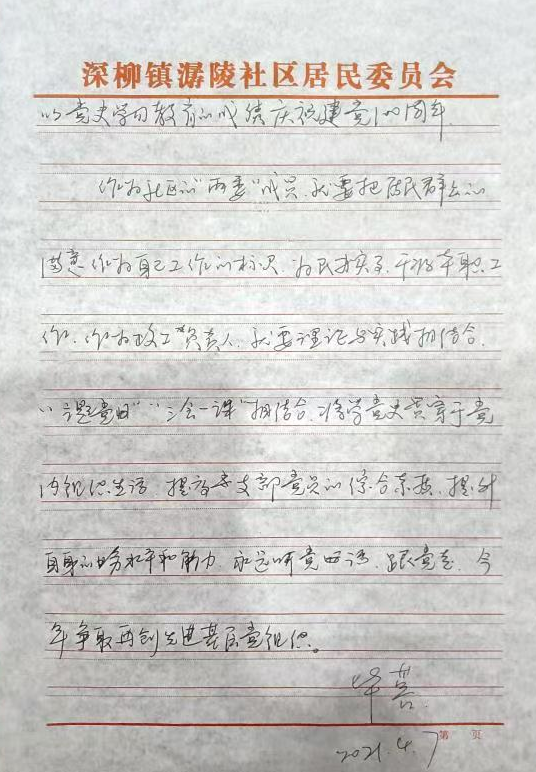 深柳镇潺陵社区居民委员会
以党史学习教育的成绩庆祝建党100周年
作为社区的"两委"成员,就要把居民群众的
满意作为自己工作的标识,为民办实事,干好本职工
作,作为政工负责人,就要理论与实践相结合,
"主题党日""三会一课"相结合,将学党史贯穿于党
内组织生活,提高支部党员的综合素质,提升
自身的业务水平和能力,永远听党的话,跟党走,今
年争取再创先进基层党组织。
2021.4.7
第 页